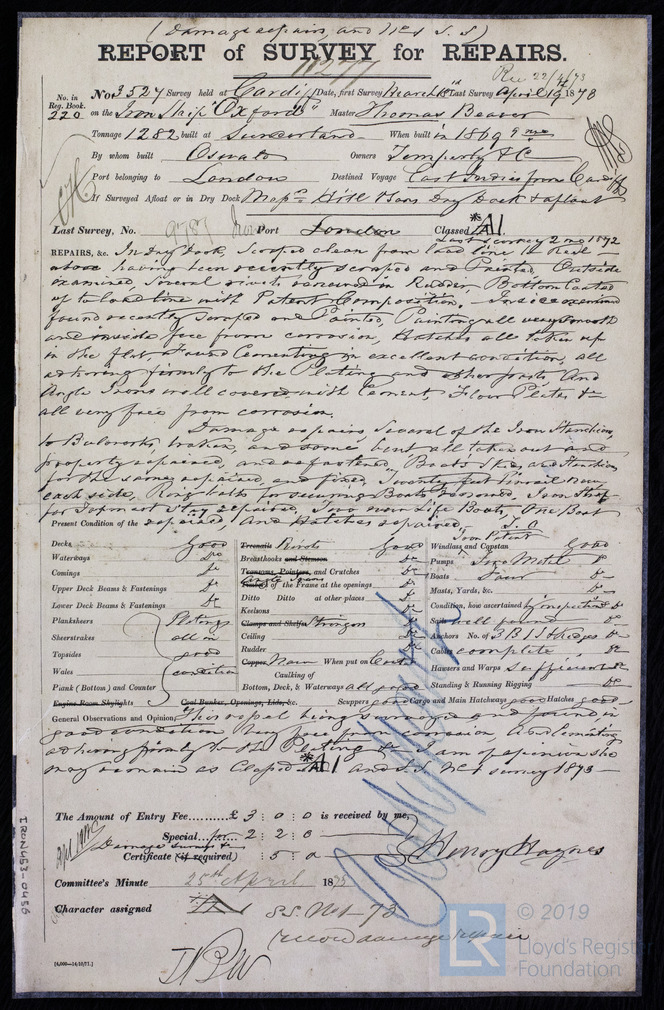 (Damage repairs, and No 1 S.S)
REPORT of SURVEY for REPAIRS.
11277
Rec 22/4/73
No. in Reg. Book. No 3527 Survey held at Cardiff Date, first Survey March Last Survey April 19 1873
220 on the Iron Ship "Oxford" Master Thomas Beaver
Tonnage 1282 built at Sunderland When built in 1869 9 mo
By whom built Oswald Owners Temperly & Co
Port belonging to London Destined Voyage East Indies from Cardiff
If Surveyed Afloat or in Dry Dock Hill & Sons Dry Dock & afloat
Last Survey, No. 9787 Port London Classed *A1.
Last survey 2 mo 1872
REPAIRS, &c. In Dry Dock, Scraped clean from load line to Keel
above having been recently scraped and Painted. Outside
examined, several rivets renewed in Rudder, Bottom Coated
up to load line with Patent Composition. Inside examined
found recently scraped and Painted, Painting all very smooth
and inside free from corrosion, Hatches all taken up
in the flat & found Cementing in excellent condition, all
adhering firmly to the Plating and other parts and
Angle Irons well covered with Cement, Floor Plates &c
all very free from corrosion.
Damage repairs Several of the Iron Stanchions
to Bulwarks broken, and some bent all taken out and
properly repaired, and refastened, Boats Skids and Stanchions
for the same repaired, and fixed, twenty feet Pinrail new
each side, Ring bolts for securing Boats renewed, Iron Strop
for Topmast Stay repaired, Two new Life Boats, One Boat
Present Condition of the repaired and Hatches repaired,
Decks Good
Waterways Do
Comings Do
Upper Deck Beams & Fastenings Do
Lower Deck Beams & Fastenings Do
Planksheers Plating
Sheerstrakes all in
Topsides good
Wales condition
Plank (Bottom) and Counter
Engine Room Skylights
Treenails Rivets Good
Breasthooks and Stemson Do
Transoms, Pointers, and Crutches Do
Angle Irons of the Frame at the openings Do
Ditto Ditto at other places Do
Keelsons Do
Clamps and Shelfs Stringers Do
Ceiling Do
Rudder Do
Copper When put on Coated
Caulking of
Bottom, Deck, & Waterways all good
Coal Bunker, Openings, Lids, &c. Scuppers good Cargo and Main Hatchways good Hatches good
Windlass and Capstan Iron Patent Good
Pumps Two Metal Do
Boats Four Do
Masts, Yards, &c. Do
Condition, how ascertained by inspection Do
Sails well found Do
Anchors No. of 3 B 1 S
Cables complete Do
Hawsers and Warps sufficient Do
Standing & Running Rigging Do
General Observations and Opinion, This vessel being surveyed and found in
good condition very free from corrosion and Cementing
adhering firmly to the Plating &c I am of opinion she
may remain as Classed *A1 and S.S. No 1 survey 1873
The Amount of Entry Fee.........£ 3 : 0 : 0 is received by me,
Special for 2 : 2 : 0
Damage surveys &c
Certificate (if required) : 5 : 0
Henry Haynes
Committee's Minute 25th April 1873
Character assigned A1 S.S. No 1-73
record damage repair
IRON453-0456
[4,000—14/10/71.]
LR
© 2019
Lloyd's Register
Foundation